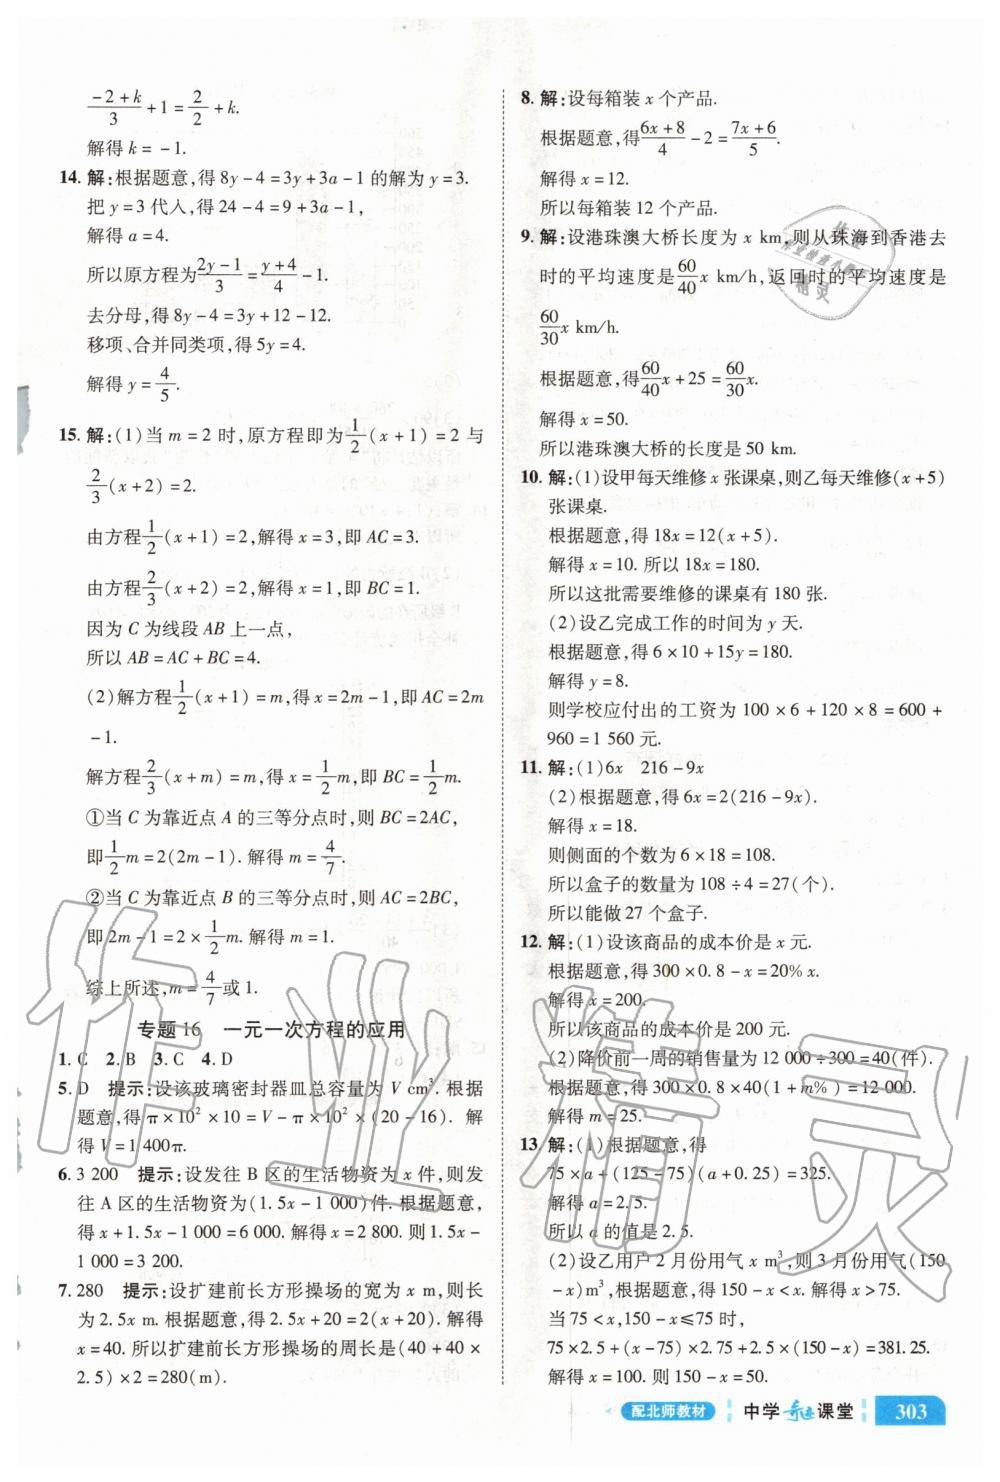 (-2+k)/3+1=2/2+k.
解得k=-1.
14.解:根据题意,得8y-4=3y+3a-1的解为y=3.
把y=3代入,得24-4=9+3a-1,
解得a=4.
所以原方程为(2y-1)/3=(y+4)/4-1.
去分母,得8y-4=3y+12-12.
移项、合并同类项,得5y=4.
解得y=4/5.
15.解:(1)当m=2时,原方程即为1/2(x+1)=2与
2/3(x+2)=2.
由方程1/2(x+1)=2,解得x=3,即AC=3.
由方程2/3(x+2)=2,解得x=1,即BC=1.
因为C为线段AB上一点,
所以AB=AC+BC=4.
(2)解方程1/2(x+1)=m,得x=2m-1,即AC=2m
-1.
解方程2/3(x+m)=m,得x=1/2m,即BC=1/2m.
①当C为靠近点A的三等分点时,则BC=2AC,
即1/2m=2(2m-1).解得m=4/7.
②当C为靠近点B的三等分点时,则AC=2BC,
即2m-1=2×1/2m.解得m=1.
综上所述,m=4/7或1.
专题16 一元一次方程的应用
1.C 2.B 3.C 4.D
5.D 提示:设该玻璃密封器皿总容量为V cm³.根据
题意,得π×10²×10=V-π×10²×(20-16). 解
得V=1 400π.
6.3 200 提示:设发往B区的生活物资为x件,则发
往A区的生活物资为(1.5x-1 000)件.根据题意,
得x+1.5x-1 000=6 000.解得x=2 800.则1.5x
-1 000=3 200.
7.280 提示:设扩建前长方形操场的宽为x m,则长
为2.5x m.根据题意,得2.5x+20=2(x+20).解得
x=40.所以扩建前长方形操场的周长是(40+40×
2.5)×2=280(m).
8.解:设每箱装x个产品.
根据题意,得(6x+8)/4-2=(7x+6)/5.
解得x=12.
所以每箱装12个产品.
9.解:设港珠澳大桥长度为x km,则从珠海到香港去
时的平均速度是60/40x km/h,返回时的平均速度是
60/30x km/h.
根据题意,得60/40x+25=60/30x.
解得x=50.
所以港珠澳大桥的长度是50 km.
10.解:(1)设甲每天维修x张课桌,则乙每天维修(x+5)
张课桌.
根据题意,得18x=12(x+5).
解得x=10.所以18x=180.
所以这批需要维修的课桌有180张.
(2)设乙完成工作的时间为y天.
根据题意,得6×10+15y=180.
解得y=8.
则学校应付出的工资为100×6+120×8=600+
960=1 560元.
11.解:(1)6x 216-9x
(2)根据题意,得6x=2(216-9x).
解得x=18.
则侧面的个数为6×18=108.
所以盒子的数量为108÷4=27(个).
所以能做27个盒子.
12.解:(1)设该商品的成本价是x元.
根据题意,得300×0.8-x=20%x.
解得x=200.
所以该商品的成本价是200元.
(2)降价前一周的销售量为12 000÷300=40(件).
根据题意,得300×0.8×40(1+m%)=12 000.
解得m=25.
13.解:(1)根据题意,得
75×a+(125-75)(a+0.25)=325.
解得a=2.5.
所以a的值是2.5.
(2)设乙用户2月份用气x m³,则3月份用气(150
-x)m³,根据题意,得150-x<x.解得x>75.
当75<x,150-x≤75时,
75×2.5+(x-75)×2.75+2.5×(150-x)=381.25.
解得x=100.则150-x=50.
配北师教材 中学奇迹课堂 303
作业精灵